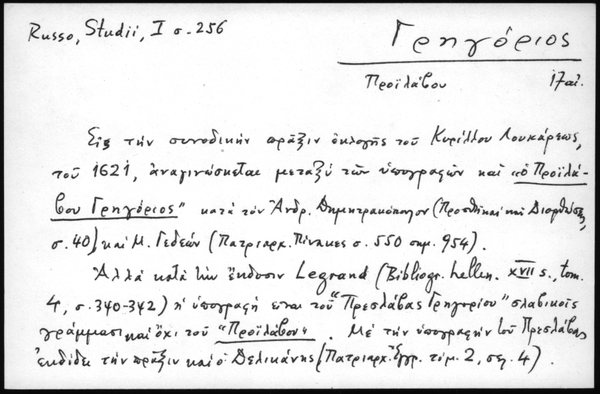 Russo, Studii, I σ. 256
Γρηγόριος
Προϊλάβου 17 αἰ.
Εἰς τὴν συνοδικὴν πρᾶξιν ἐκλογῆς τοῦ Κυρίλλου Λουκάρεως,
τοῦ 1621, ἀναγινώσκεται μεταξὺ τῶν ὑπογραφῶν καὶ «ὁ Προϊλά-
βου Γρηγόριος» κατὰ τὸν Ἀνδρ. Δημητρακόπουλον (Προσθῆκαι καὶ Διορθώσεις,
σ. 40) καὶ Μ. Γεδεών (Πατριαρχ. Πίνακες σ. 550 σημ. 954).
Ἀλλὰ κατὰ τὴν ἔκδοσιν Legrand (Bibliogr. hellen. XVII s., tom.
4, σ. 340-342) ἡ ὑπογραφὴ εἶναι τοῦ "Πρεσλάβας Γρηγορίου" σλαβικοῖς
γράμμασι καὶ ὄχι τοῦ "Προϊλάβου". Μὲ τὴν ὑπογραφὴν τοῦ Πρεσλάβας
ἐκδίδει τὴν πρᾶξιν καὶ ὁ Δελικάνης (Πατριαρχ. Ἔγγρ. τόμ. 2, σελ. 4).